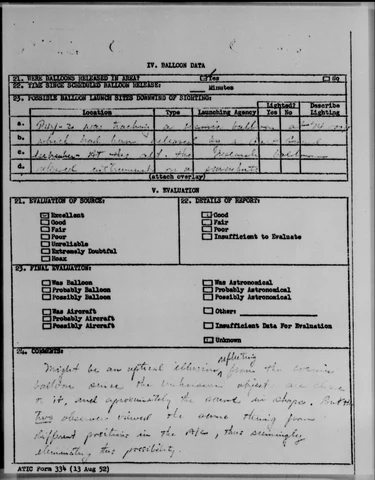 IV. BALLOON DATA
21. WERE BALLOONS RELEASED IN AREA? Yes No
22. TIME SINCE SCHEDULED BALLOON RELEASE: Minutes
23. POSSIBLE BALLOON LAUNCH SITES DOWNWIND OF SIGHTING:
Lighted? Describe
Location Type Launching Agency Yes No Lighting
a. was tracking a balloon
b. which had been released by
c. At this alt. the balloon
d. instrument on a parachute
(attach overlay)
V. EVALUATION
21. EVALUATION OF SOURCE: 22. DETAILS OF REPORT:
Excellent Good
Good Fair
Fair Poor
Poor Insufficient to Evaluate
Unreliable
Extremely Doubtful
Hoax
23. FINAL EVALUATION:
Was Balloon Was Astronomical
Probably Balloon Probably Astronomical
Possibly Balloon Possibly Astronomical
Was Aircraft Other:
Probably Aircraft
Possibly Aircraft Insufficient Data For Evaluation
Unknown
24. COMMENTS:
Might be an optical illusion reflecting from the cosmic
balloon since the unknown object was close
to it, and aproximately the same in shape. But the
two observers viewed the same thing from
different positions in the A/C, thus seemingly
elemenating this possibility.
ATIC Form 334 (13 Aug 52)